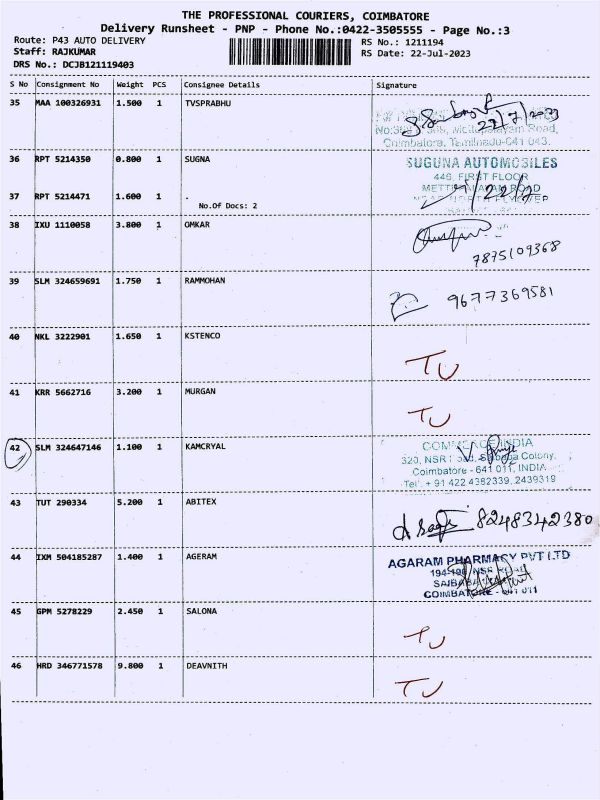 THE PROFESSIONAL COURIERS, COIMBATORE
Delivery Runsheet - PNP - Phone No.:0422-3505555 - Page No.:3
Route: P43 AUTO DELIVERY
RS No.: 1211194
Staff: RAJKUMAR
RS Date: 22-Jul-2023
DRS No.: DCJB121119403
S No Consignment No Weight PCS Consignee Details Signature
35 MAA 100326931 1.500 1 TVSPRABHU
22/7/2023
Road,
Coimbatore, Tamilnadu-641 043.
36 RPT 5214350 0.800 1 SUGNA
SUGUNA AUTOMOBILES
446, FIRST FLOOR
37 RPT 5214471 1.600 1 .
ROAD
No.Of Docs: 2
38 IXU 1110058 3.800 1 OMKAR
7875109368
39 SLM 324659691 1.750 1 RAMMOHAN
9677369581
40 NKL 3222901 1.650 1 KSTENCO
TU
41 KRR 5662716 3.200 1 MURGAN
TU
42 SLM 324647146 1.100 1 KAMCRYAL
COMMERCE INDIA
320, NSR Road, Saibaba Colony,
Coimbatore - 641 011, INDIA
Tel : + 91 422 4382339, 2439319
43 TUT 290334 5.200 1 ABITEX
8248342380
44 IXM 504185287 1.400 1 AGERAM
AGARAM PHARMACY PVT LTD
NSR ROAD
COIMBATORE - 641 011
45 GPM 5278229 2.450 1 SALONA
TU
46 HRD 346771578 9.800 1 DEAVNITH
TU